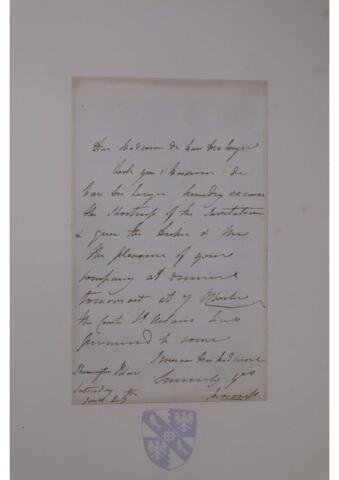 Dear Madame de Van der Weyer
Will you & Monsieur de
Van der Weyer kindly excuse
the shortness of the Invitation
& give the Bishop & me
the pleasure of your
company at dinner
tomorrow at 7 O'Clock
the Comte St Aulaire has
promised to come
I remain dear Madame
Sincerely yrs
Saturday